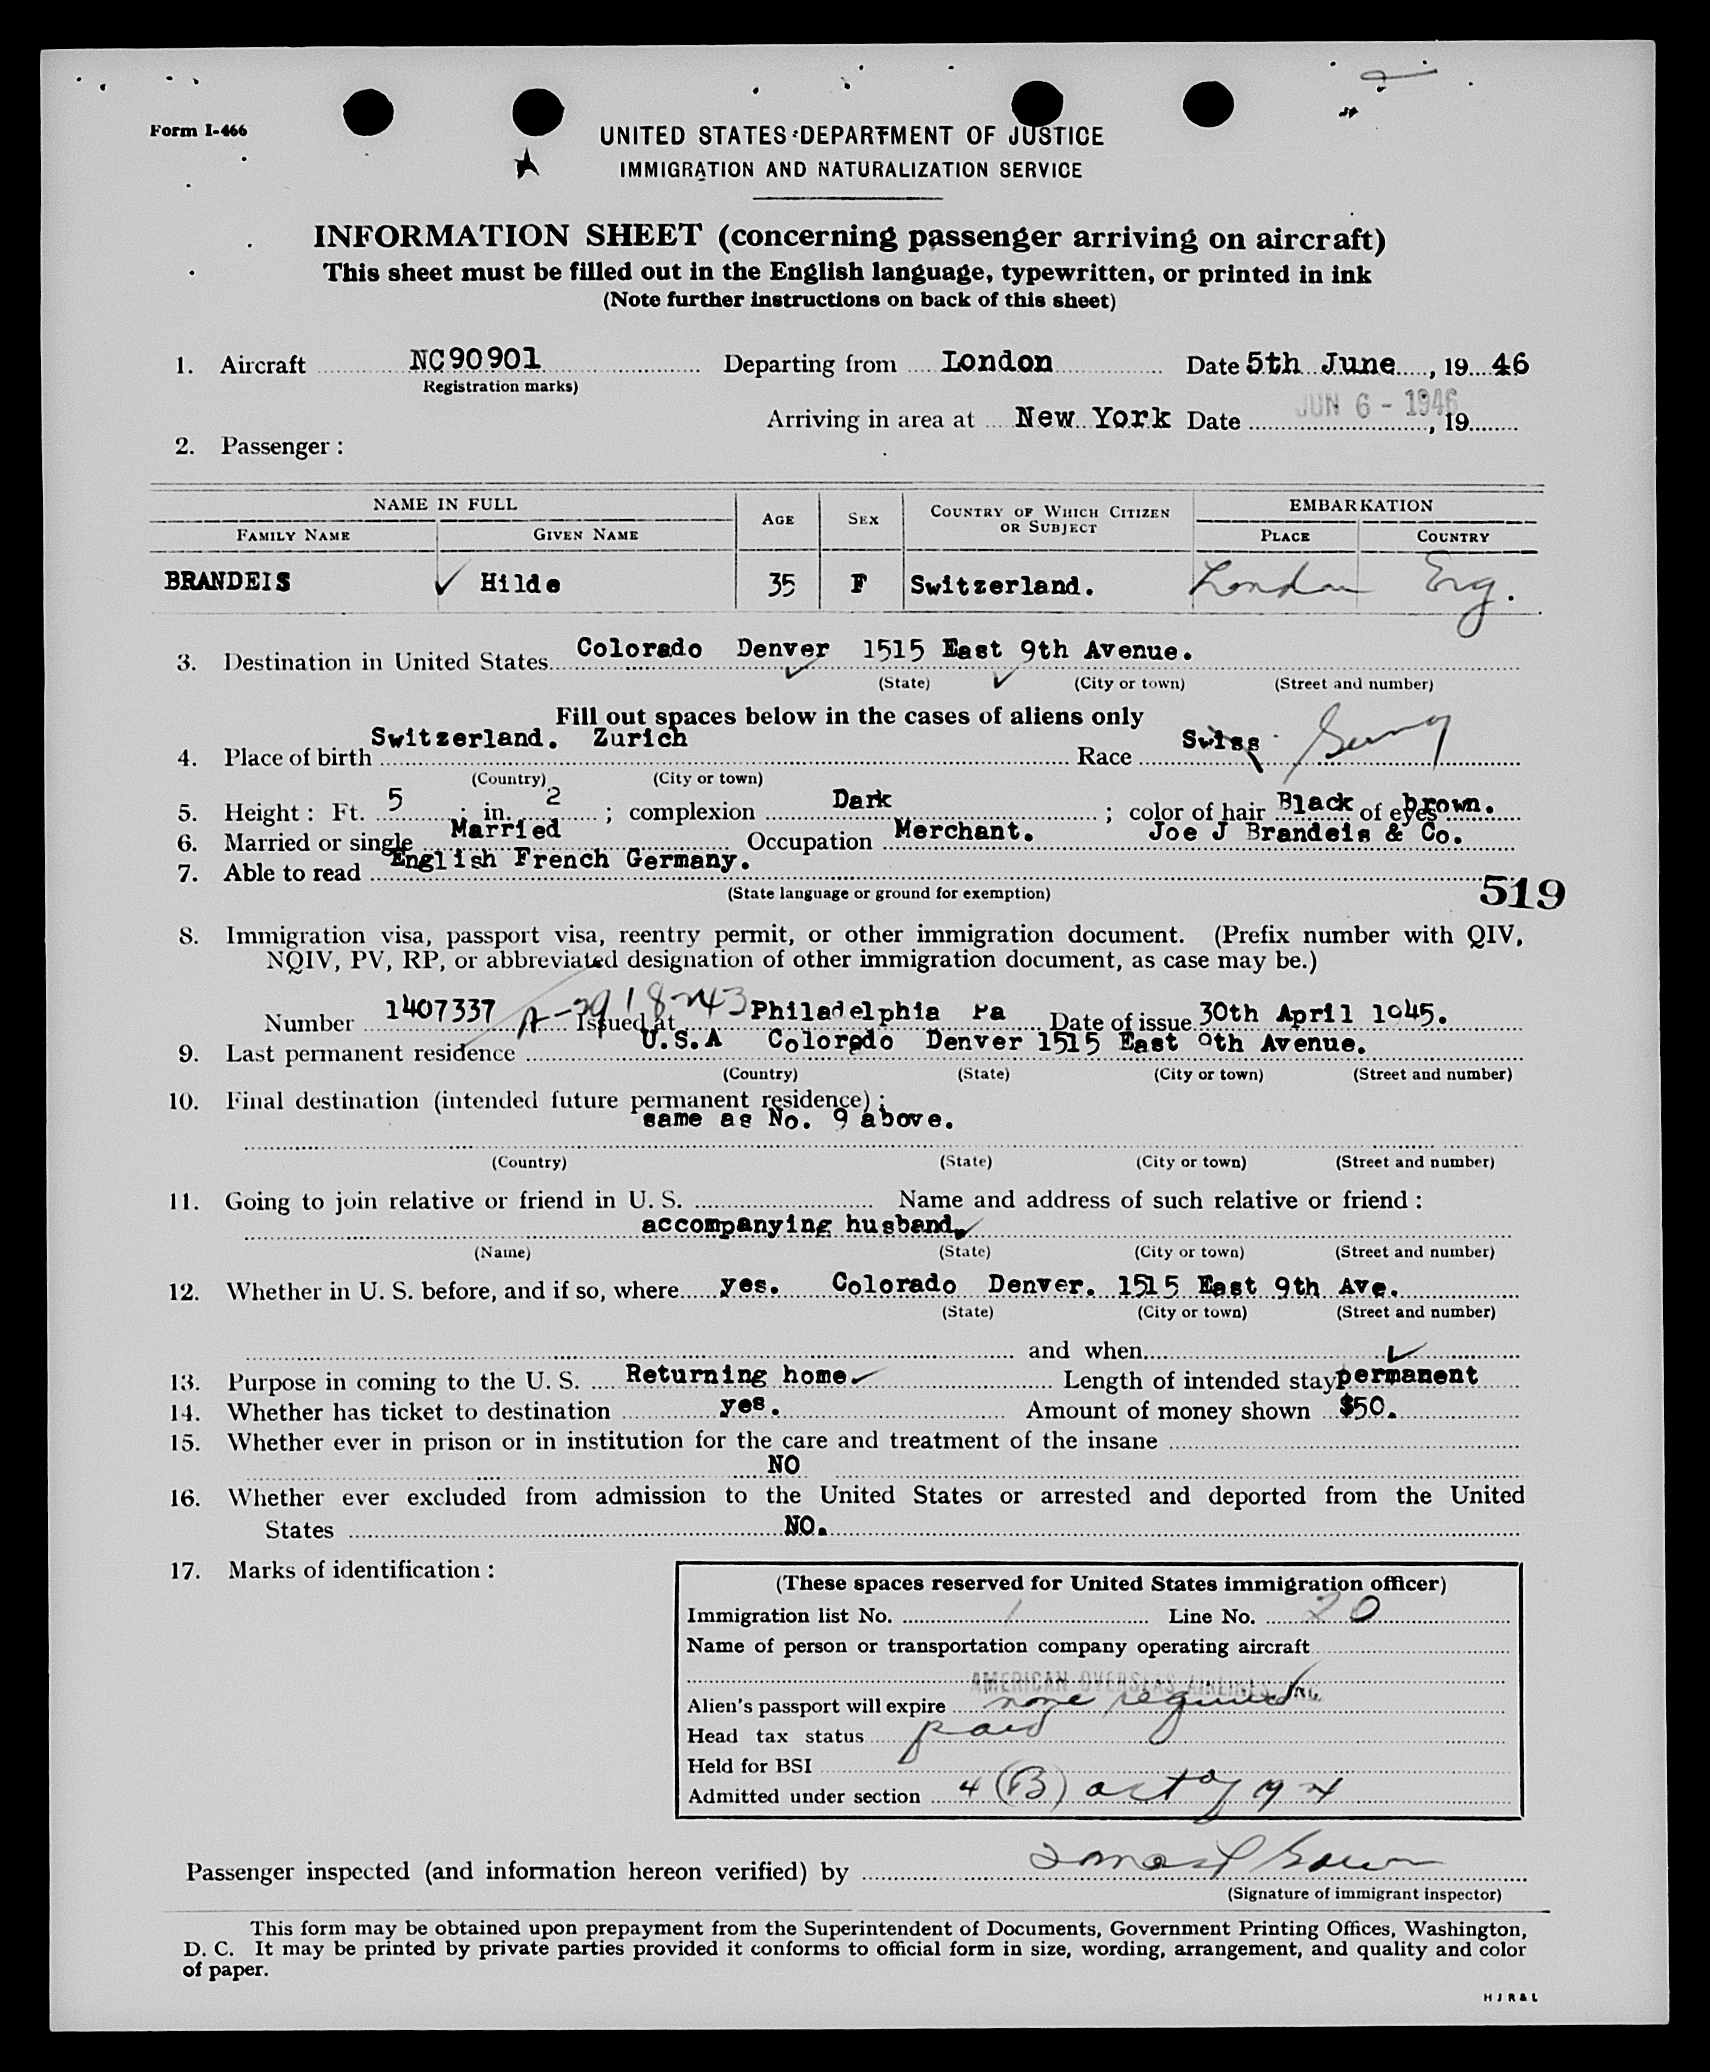 Form I-466
UNITED STATES DEPARTMENT OF JUSTICE
IMMIGRATION AND NATURALIZATION SERVICE
INFORMATION SHEET (concerning passenger arriving on aircraft)
This sheet must be filled out in the English language, typewritten, or printed in ink
(Note further instructions on back of this sheet)
1. Aircraft NC90901 Departing from London Date 5th June, 1946
Registration marks)
JUN 6 - 1946
Arriving in area at New York Date , 19
2. Passenger :
NAME IN FULL AGE SEX COUNTRY OF WHICH CITIZEN OR SUBJECT EMBARKATION
FAMILY NAME GIVEN NAME PLACE COUNTRY
BRANDEIS Hilde 35 F Switzerland. London Eng.
3. Destination in United States Colorado Denver 1515 East 9th Avenue.
(State) (City or town) (Street and number)
Fill out spaces below in the cases of aliens only
4. Place of birth Switzerland. Zurich Race Swiss
(Country) (City or town)
5. Height : Ft. 5 ; in. 2 ; complexion Dark ; color of hair Black of eyes brown.
6. Married or single Married Occupation Merchant. Joe J Brandeis & Co.
7. Able to read English French Germany.
(State language or ground for exemption)
519
8. Immigration visa, passport visa, reentry permit, or other immigration document. (Prefix number with QIV,
NQIV, PV, RP, or abbreviated designation of other immigration document, as case may be.)
Number 1407337 Issued at Philadelphia Pa Date of issue 30th April 1945.
9. Last permanent residence U.S.A Colorado Denver 1515 East 9th Avenue.
(Country) (State) (City or town) (Street and number)
10. Final destination (intended future permanent residence) :
same as No. 9 above.
(Country) (State) (City or town) (Street and number)
11. Going to join relative or friend in U. S. Name and address of such relative or friend :
accompanying husband.
(Name) (State) (City or town) (Street and number)
12. Whether in U. S. before, and if so, where yes. Colorado Denver. 1515 East 9th Ave.
(State) (City or town) (Street and number)
and when
13. Purpose in coming to the U. S. Returning home Length of intended stay permanent
14. Whether has ticket to destination yes. Amount of money shown $50.
15. Whether ever in prison or in institution for the care and treatment of the insane
NO
16. Whether ever excluded from admission to the United States or arrested and deported from the United
States NO.
17. Marks of identification :
(These spaces reserved for United States immigration officer)
Immigration list No. 1 Line No. 20
Name of person or transportation company operating aircraft
AMERICAN OVERSEAS AIRLINES, INC.
Alien's passport will expire none required
Head tax status paid
Held for BSI
Admitted under section 4 (B) act of
Passenger inspected (and information hereon verified) by
(Signature of immigrant inspector)
This form may be obtained upon prepayment from the Superintendent of Documents, Government Printing Offices, Washington,
D. C. It may be printed by private parties provided it conforms to official form in size, wording, arrangement, and quality and color
of paper.
H J R & L